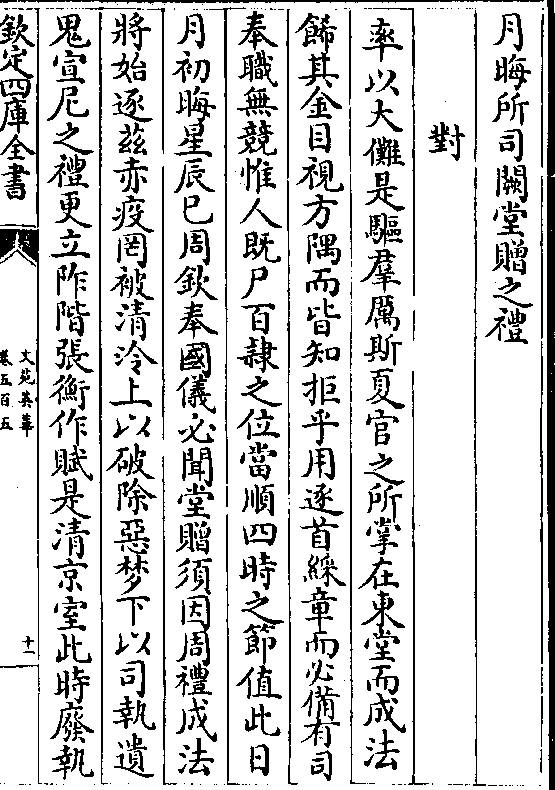 月晦所司闕堂贈之禮
對
率以大儺是驅羣厲斯夏官之所掌在東堂而成法
飾其金目視方隅而皆知拒乎用逐首綵章而必備有司
奉職無競惟人既尸百隷之位當順四時之節值此日
月初晦星辰已周欽奉國儀必聞堂贈須因周禮成法
將始逐茲赤疫罔被清泠上以破除惡梦下以司執遺
鬼宣尼之禮更立阼階張衡作賦是清京室此時廢執
欽定四庫全書
文苑英華
卷五百五
十二